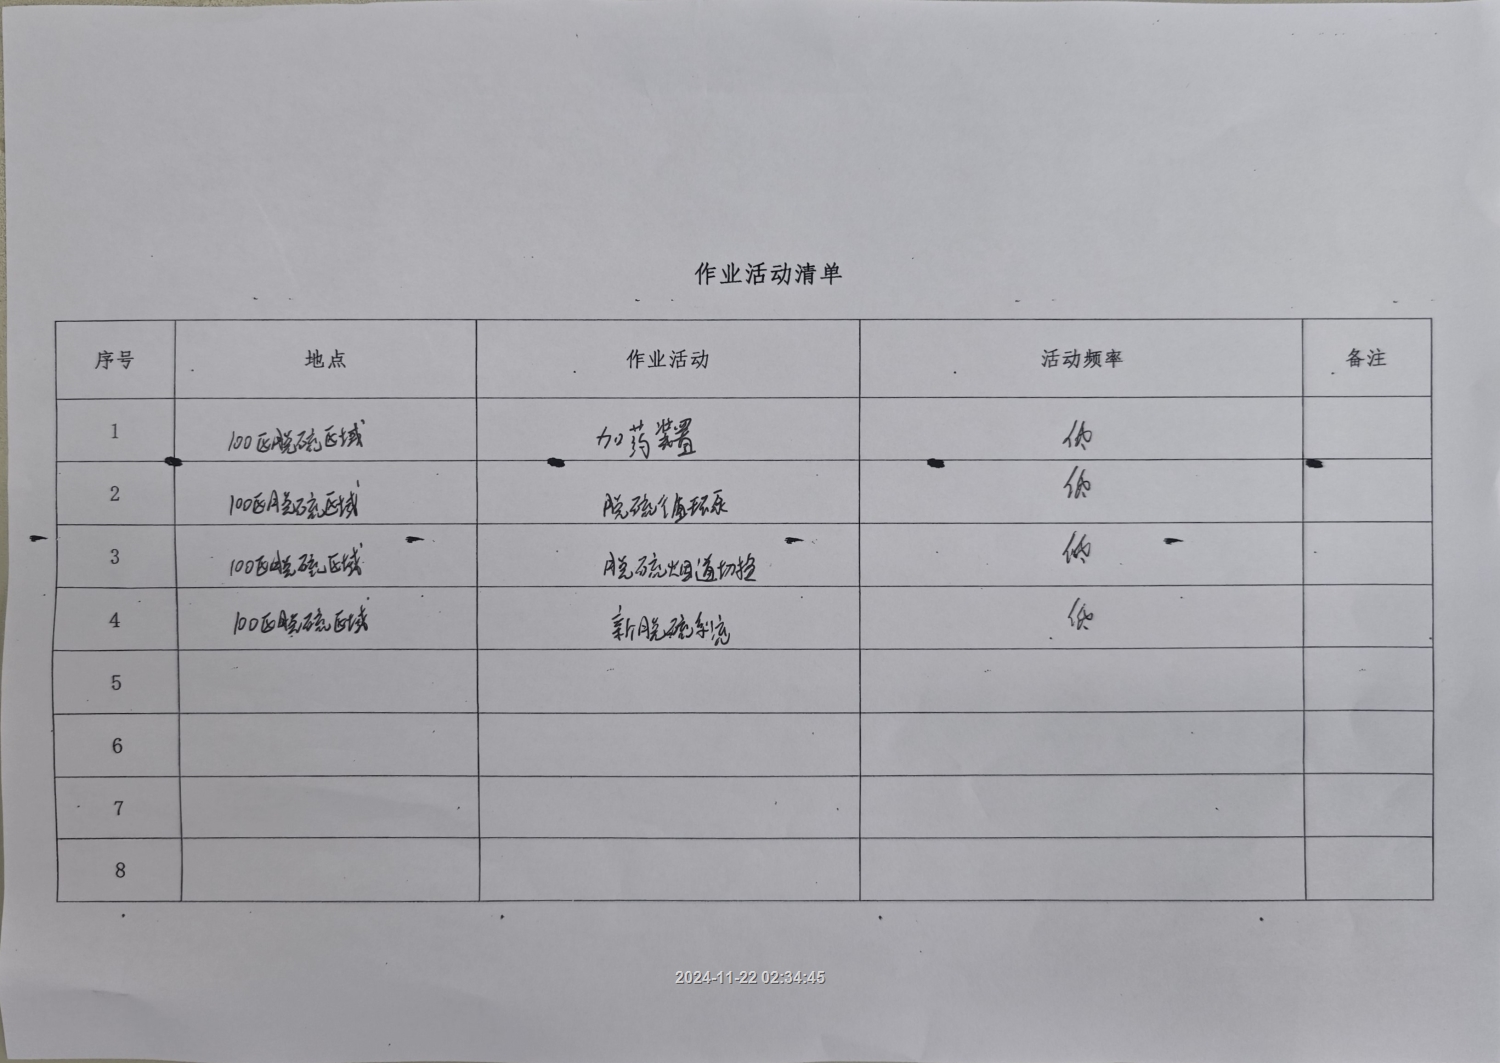 作业活动清单
序号 地点 作业活动 活动频率 备注
1 100区脱硫区域 加药装置 低
2 100区脱硫区域 脱硫循环泵 低
3 100区脱硫区域 脱硫烟道切换 低
4 100区脱硫区域 新脱硫系统 低
5
6
7
8
2024-11-22 02:34:45